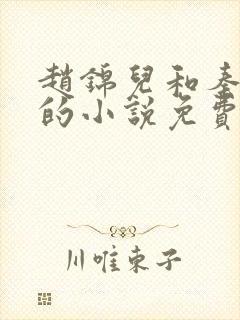 趙錦兒和秦
的小說免費
川唯東子